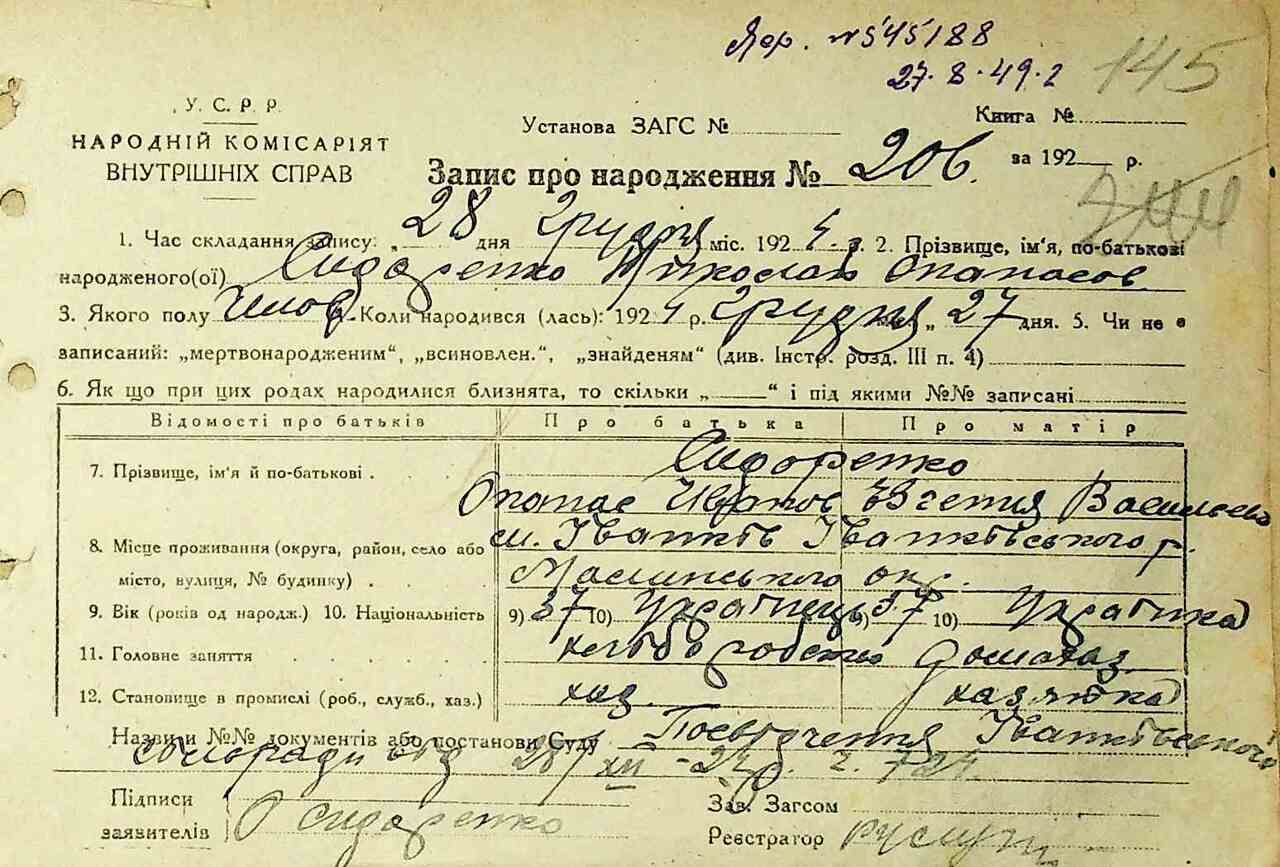 № 545188
27.8.49.
145
У. С. Р. Р.
НАРОДНІЙ КОМІСАРІЯТ
ВНУТРІШНІХ СПРАВ
Установа ЗАГС №
Книга №
Запис про народження № 206. за 192 р.
1. Час складання запису: „28 дня Грудня міс. 1924 р. 2. Прізвище, ім'я, по-батькові
народженого(ої) Сидоренко Николай Опанасов
3. Якого полу Челов. Коли народився (лась): 1924 р. Грудня „27 дня. 5. Чи не є
записаний: „мертвонародженим“, „всиновлен.“, „знайденям“ (див. Інстр. розд. III п. 4)
6. Як що при цих родах народилися близнята, то скільки „ “ і під якими №№ записані
Відомості про батьків Про батька Про матір
7. Прізвище, ім'я й по-батькові . Сидоренко
Опанас Иванов Євгенія Васильевна
8. Місце проживання (округа, район, село або м. Іванків Іванківського р.
місто, вулиця, № будинку) . . Малинського окр.
9. Вік (років од народж.) 10. Національність 9) 37 10) Українець 9) 37 10) Українка
11. Головне заняття хліборобство домохаз.
12. Становище в промислі (роб., служб., хаз.) хаз. хазяйка
Назви й №№ документів або постанови Суду Посвідчення Іванківського
сільради від 28/XII-24 р. № 724.
Підписи
заявителів О Сидоренко
Зав. Загсом
Реєстратор